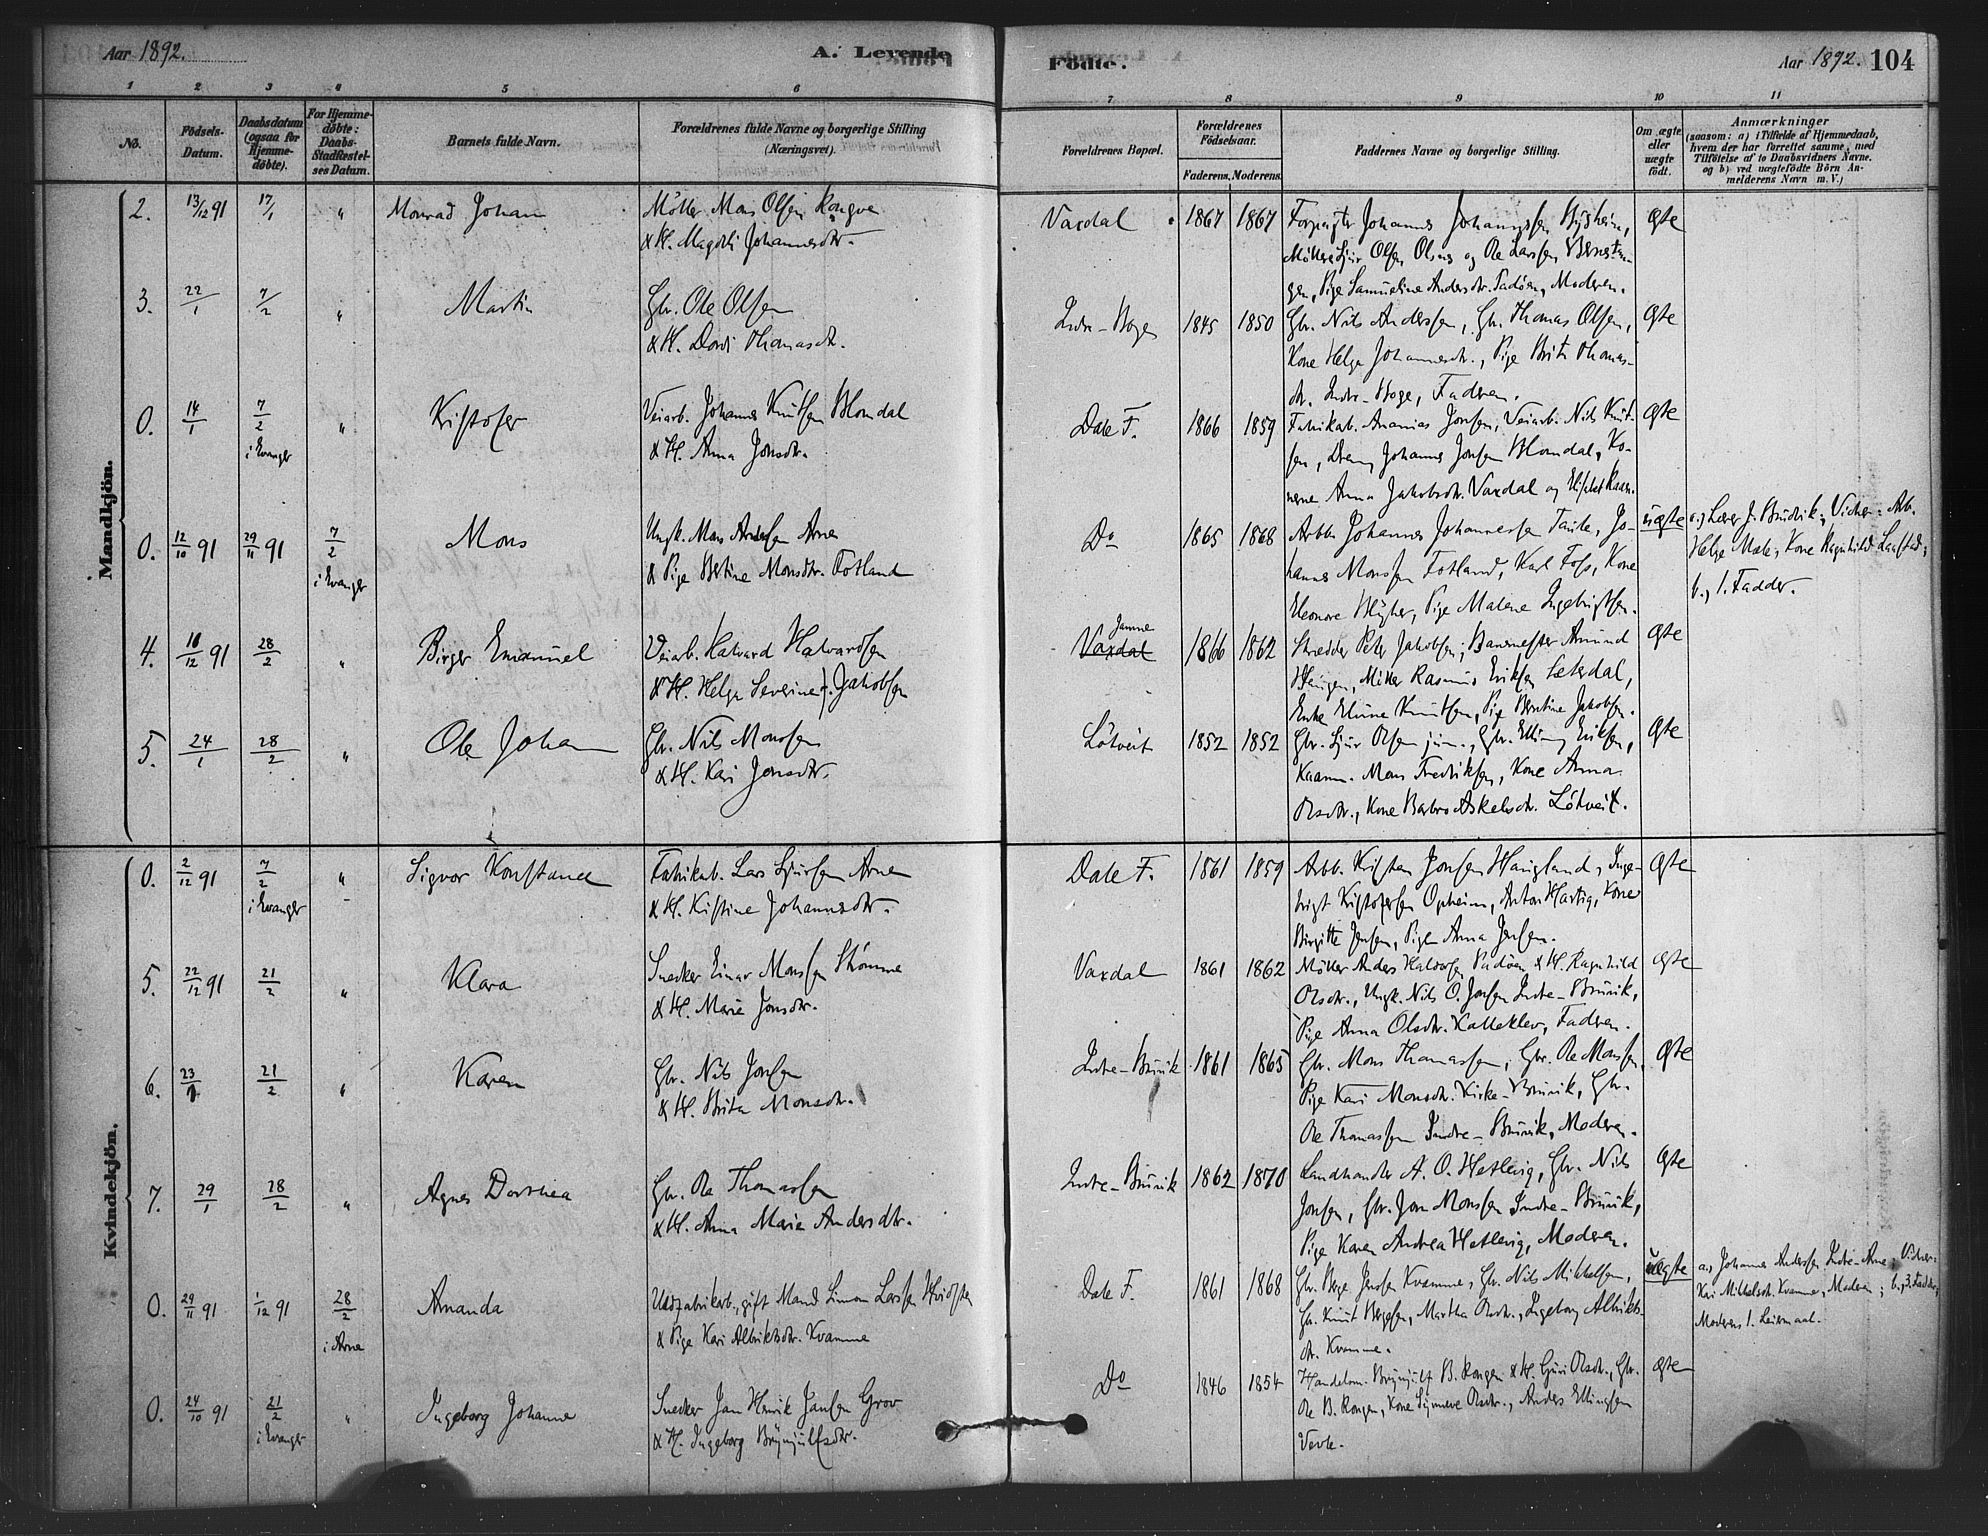 Aar 1892.
A. Levende
Födte.
Aar 1892.
104
1 2 3 4 5 6 7 8 9 10 11
No.
Födsels-Datum.
Daabsdatum (ogsaa for Hjemme-döbte).
For Hjemme-döbte: Daabs-Stadfæstel-ses Datum.
Barnets fulde Navn.
Forældrenes fulde Navne og borgerlige Stilling (Næringsvei).
Forældrenes Bopæl.
Forældrenes Födselsaar.
Faderens. Moderens.
Faddernes Navne og borgerlige Stilling.
Om ægte eller uægte födt.
Anmærkninger
(saasom: a) i Tilfælde af Hjemmedaab,
hvem der har forrettet samme, med
Tilföielse af to Daabsvidners Navne.
og b) ved uægtefödte Börn An-
melderens Navn m. V.)
Mandkjön.
2. 13/12 91 17/1 " Monrad Johan
Möller Mons Olsen
& H. Magdli Johannesdtr.
Vaxdal 1867 1867
Forpagter Johannes Johannessen
Möllere Sjur Olsen og Ole Larssen
Pige Samueline Andersdtr. Fadöen, Moderen.
Ægte
3. 22/1 7/2 " Martin
Gbr. Ole Olsen
& H. Dordi Thomasdtr.
Indre-Boge 1845 1850
Gbr. Nils Anderssen, Gbr. Thomas Olsen,
Kone Helga Johannesdtr., Pige Brita Thomas-
dtr. Indre-Boge, Faderen.
Ægte
0. 14/1 7/2 i Evanger " Kristofer
Veiarb. Johannes Knutsen Blomdal
& H. Anna Jonsdtr.
Dale F. 1866 1859
Fabrikarb. Ananias Jonsen, Veiarb. Nils Knut-
sen, Dreng Johannes Jonsen Blomdal, Ko-
nerne Anna Jakobsdtr. Vaxdal og
Ægte
0. 12/10 91 29/11 91 7/2 i Evanger Mons
Ungk. Mons Andersen Arne
& Pige Bertine Monsdtr. Fotland
Do 1865 1868
Arbb. Johannes Johannessen Jo-
hannes Monsen Fotland, Karl Foss, Kone
Eleonore Pige Malene Ingebrigtsen.
uægte
a.) Lærer J. Vidner: Arb.
Helge Kone Ragnhild
b.) 1. Fadder.
4. 10/12 91 28/2 " Birger Emanuel
Veiarb. Halvard Halvardsen
& H. Helga Severine f. Jakobsen
Vaxdal 1866 1862
Skredder Peter Jakobsen, Banemester Amund
Möller Rasmus Eriksen
Enke Knutsen, Pige Bertine Jakobsen.
Ægte
5. 24/1 28/2 " Ole Johan
Gbr. Nils Monsen
& H. Kari Jonsdtr.
Lötveit 1852 1852
Gbr. Sjur Olsen jun., Gbr. Elling Eriksen,
Kaarm. Mons Fredriksen, Kone Anna
Olsdtr., Kone Barbro Askelsdtr. Lötveit.
Ægte
Kvindekjön.
0. 2/12 91 7/2 i Evanger " Sigvor Konstance
Fabrikarb. Lars Sjursen Arne
& H. Kistine Johannesdtr.
Dale F. 1861 1859
Arbb. Kristen Jonsen Haugland, Inge-
brigt Kristofersen Opheim, Anton Hartig, Kone
Birgitte Jensen, Pige Anna Jensen.
Ægte
5. 22/12 91 21/2 " Klara
Snedker Einar Monsen Strömme
& H. Marie Jonsdtr.
Vaxdal 1861 1862
Möller Anders Halvorsen Fadöen & H. Ragnhild
Olsdtr., Ungk. Nils O. Jonsen Indre-Bruvik,
Pige Anna Olsdtr. Kalleklev, Faderen.
Ægte
6. 23/1 21/2 " Karen
Gbr. Nils Jonsen
& H. Brita Monsdtr.
Indre-Bruvik 1861 1865
Gbr. Mons Thomassen, Gbr. Ole Monsen,
Pige Kari Monsdtr. Kirke-Bruvik, Gbr.
Ole Thomassen Indre-Bruvik, Moderen.
Ægte
7. 29/1 28/2 " Agnes Dorthea
Gbr. Ole Thomassen
& H. Anna Marie Andersdtr.
Indre-Bruvik 1862 1870
Landhandler A. O. Hetlevig, Gbr. Nils
Jonsen, Gbr. Jon Monsen Indre-Bruvik,
Pige Karen Andrea Hetlevig, Moderen.
Ægte
0. 29/11 91 1/12 91 28/2 i Arne Amanda
Uldfabrikarb., gift Mand Simon Larssen
& Pige Kari Albriktsdtr. Kvamme
Dale F. 1861 1868
Gbr. Børge Jensen Kvamme, Gbr. Nils Mikkelsen,
Gbr. Knut Børgesen, Martha Olsdtr., Ingeborg Albrikts-
dtr. Kvamme.
uægte
a.) Johannes Anderssen Indre-Arne; Vidner:
Kari Mikkelsdtr. Kvamme, Moderen; b.) 3. Fadder;
Moderens 1. Leiermaal.
0. 24/10 91 21/2 i Evanger " Ingeborg Johanne
Snedker Jan Henrik Jansen Grov
& H. Ingeborg Brynjulfsdtr.
Do 1846 1854
Handelsm. Brynjulf B. Rongen & H. Guri Olsdtr., Gbr.
Ole B. Rongen, Kone Synneve Olsdtr., Anders Ellingsen
Vevle.
Ægte